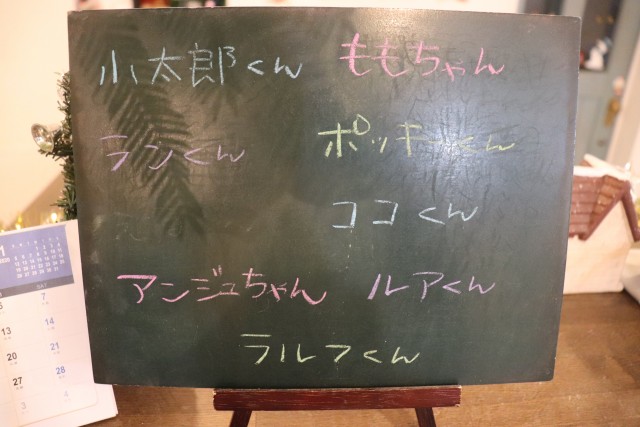 小太郎くん ももちゃん
ランくん ポッキーくん
ココくん
アンジュちゃん ルアくん
ラルフくん
1
7
13 14
20 21
27 28
3 4